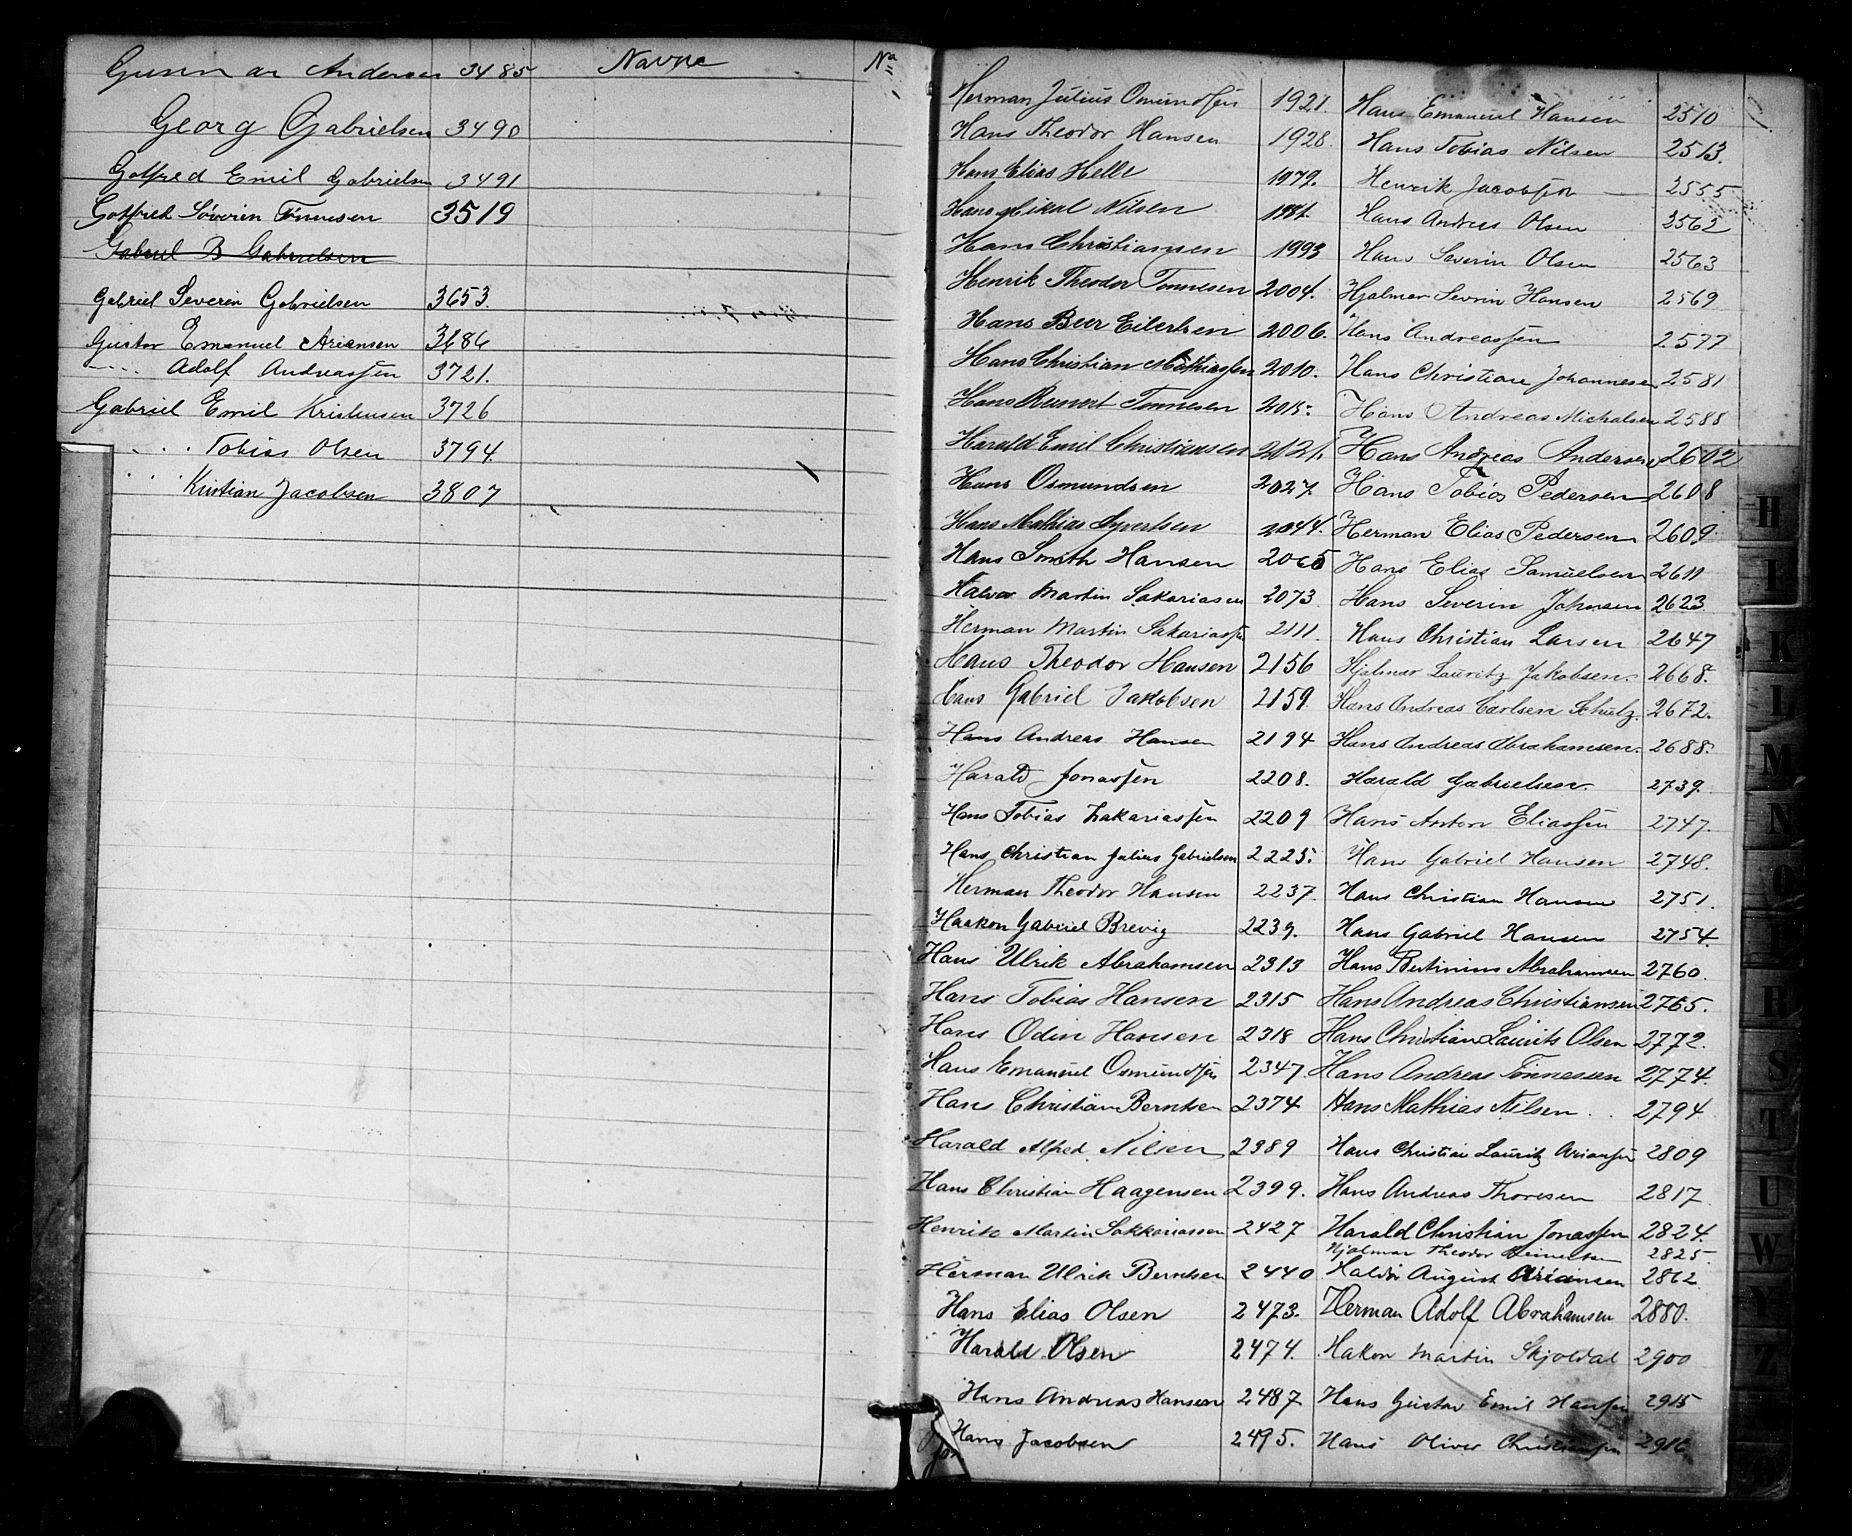 Gunnar Andersen 3485
Navne
No
Georg Gabrielsen 3490
Gotfred Emil Gabrielsen 3491
Gotfred Søverin Tønnesen 3519
Gabriel B Gabrielsen
Gabriel Severin Gabrielsen 3653.
Gustav Emanuel Ariansen 3686
" Adolf Andreassen 3721.
Gabriel Emil Kristensen 3726
" Tobias Olsen 3794
" Kristian Jacobsen 3807
Herman Julius Omundsen 1921.
Hans Theodor Hansen 1928.
Hans Elias Helle 1979.
Hans Mikal Nilsen 1981.
Hans Christiansen 1993
Henrik Theodor Tonnesen 2004.
Hans Beer Eilertsen 2006.
Hans Christian Mathiassen 2010.
Hans Reinert Tonnesen 2015.
Harald Emil Christiansen 2021.
Hans Osmundsen 2027.
Hans Mathias Syvertsen 2044.
Hans Smith Hansen 2065
Halvor Martin Sakariasen 2073
Herman Martin Sakariassen 2111.
Hans Theodor Hansen 2156
Hans Gabriel Jakobsen 2159.
Hans Andreas Hansen 2194
Harald Jonassen 2208.
Hans Tobias Zakariassen 2209
Hans Christian Julius Gabrielsen 2225.
Herman Theodor Hansen 2237.
Haakon Gabriel Brevig 2239.
Hans Ulrik Abrahamsen 2313
Hans Tobias Hansen 2315
Hans Odin Hansen 2318
Hans Emanuel Osmundsen 2347.
Hans Christian Berntsen 2374
Harald Alfred Nilsen 2389
Hans Christian Haagensen 2399.
Henrik Martin Sakkariassen 2427
Herman Ulrik Berntsen 2440
Hans Elias Olsen 2473.
Harald Olsen 2474.
Hans Andreas Hansen 2487
Hans Jacobsen 2495.
Hans Emanuel Hansen 2510
Hans Tobias Nilsen 2513.
Henrik Jacobsen 2555
Hans Andreas Olsen 2562
Hans Severin Olsen 2563
Hjalmar Sevrin Hansen 2569
Hans Andreassen 2577
Hans Christian Johannesen 2581
Hans Andreas Michalsen 2588
Hans Andreas Andersen 2602
Hans Tobias Pedersen 2608
Herman Elias Pedersen 2609
Hans Elias Samuelsen 2611
Hans Severin Johnsen 2623
Hans Christian Larsen 2647
Hjalmar Lauritz Jakobsen. 2668.
Hans Andreas Carlsen Schulz. 2672.
Hans Andreas Abrahamsen. 2688.
Harald Gabrielsen. 2739.
Hans Anton Eliassen 2747.
Hans Gabriel Hansen 2748.
Hans Christian Hansen 2751.
Hans Gabriel Hansen 2754.
Hans Bertinius Abrahamsen 2760.
Hans Andreas Christiansen 2765.
Hans Christian Laurits Olsen 2772.
Hans Andreas Tönnessen 2774.
Hans Mathias Nilsen 2794
Hans Christian Lauritz Ariansen 2809
Hans Andreas Thoresen 2817.
Harald Christian Jonassen 2824.
Hjalmar Theodor Reinertsen 2825
Haldor August Ariansen 2862
Herman Adolf Abrahamsen 2880.
Hakon Martin Skjoldal 2900
Hans Gustav Emil Hansen 2915
Hans Oliver Christiansen 2916
H
I
K
L
M
N
O
P
R
S
T
U
W
Y
Z